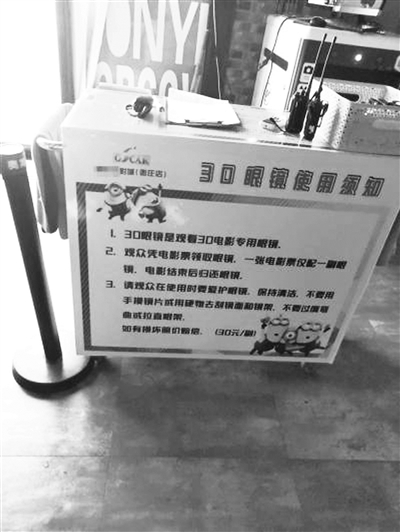 ONYI
OSCAR
影城（国庄店）
3D眼镜使用须知
1. 3D眼镜是观看3D电影专用眼镜.
2. 观众凭电影票领取眼镜，一张电影票仅配一副眼
镜，电影结束后归还眼镜.
3. 请观众在使用时要爱护眼镜，保持清洁，不要用
手摸镜片或用硬物去刮镜面和镜架，不要过度弯
曲或拉直眼架.
如有损坏照价赔偿. （30元/副）